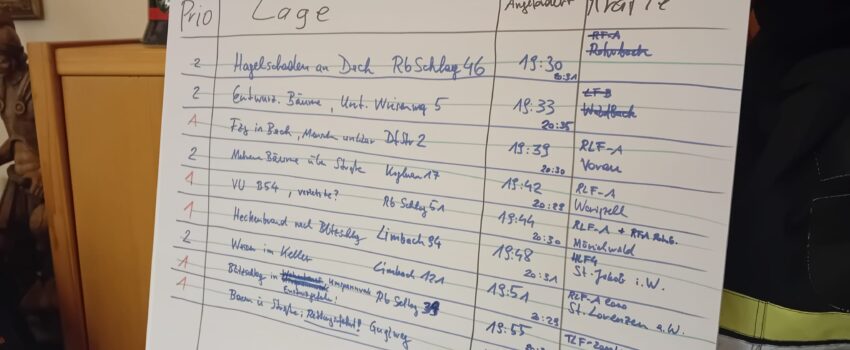 Prio Lage Angefordert Kräfte
2 Hagelschaden an Dach Rb Schlag 46 19:30 20:31 RF-A Rohrbach
2 Entwurz. Bäume, Unt. 5 19:33 20:35 LF-B Waldbach
1 Fzg in Bach, Menschen unklar Dfstr 2 19:39 20:30 RLF-A Vorau
2 Mehrere Bäume über Straße 17 19:42 20:29 RLF-A Wenigzell
1 VU B54, verletzte? Rb-Schlag 51 19:44 20:30 RLF-A + Mönichwald
1 Heckenbrand nach Blitzschlag Limbach 94 19:48 20:31 HLF4 St. Jakob i. W.
2 Wasser im Keller Limbach 121 19:51 20:29 RLF-A 2000 St. Lorenzen a. W.
1 Blitzschlag in Umspannwerk Rb Schlag 19:55
1 Baum ü Straße, Rettungszufahrt!